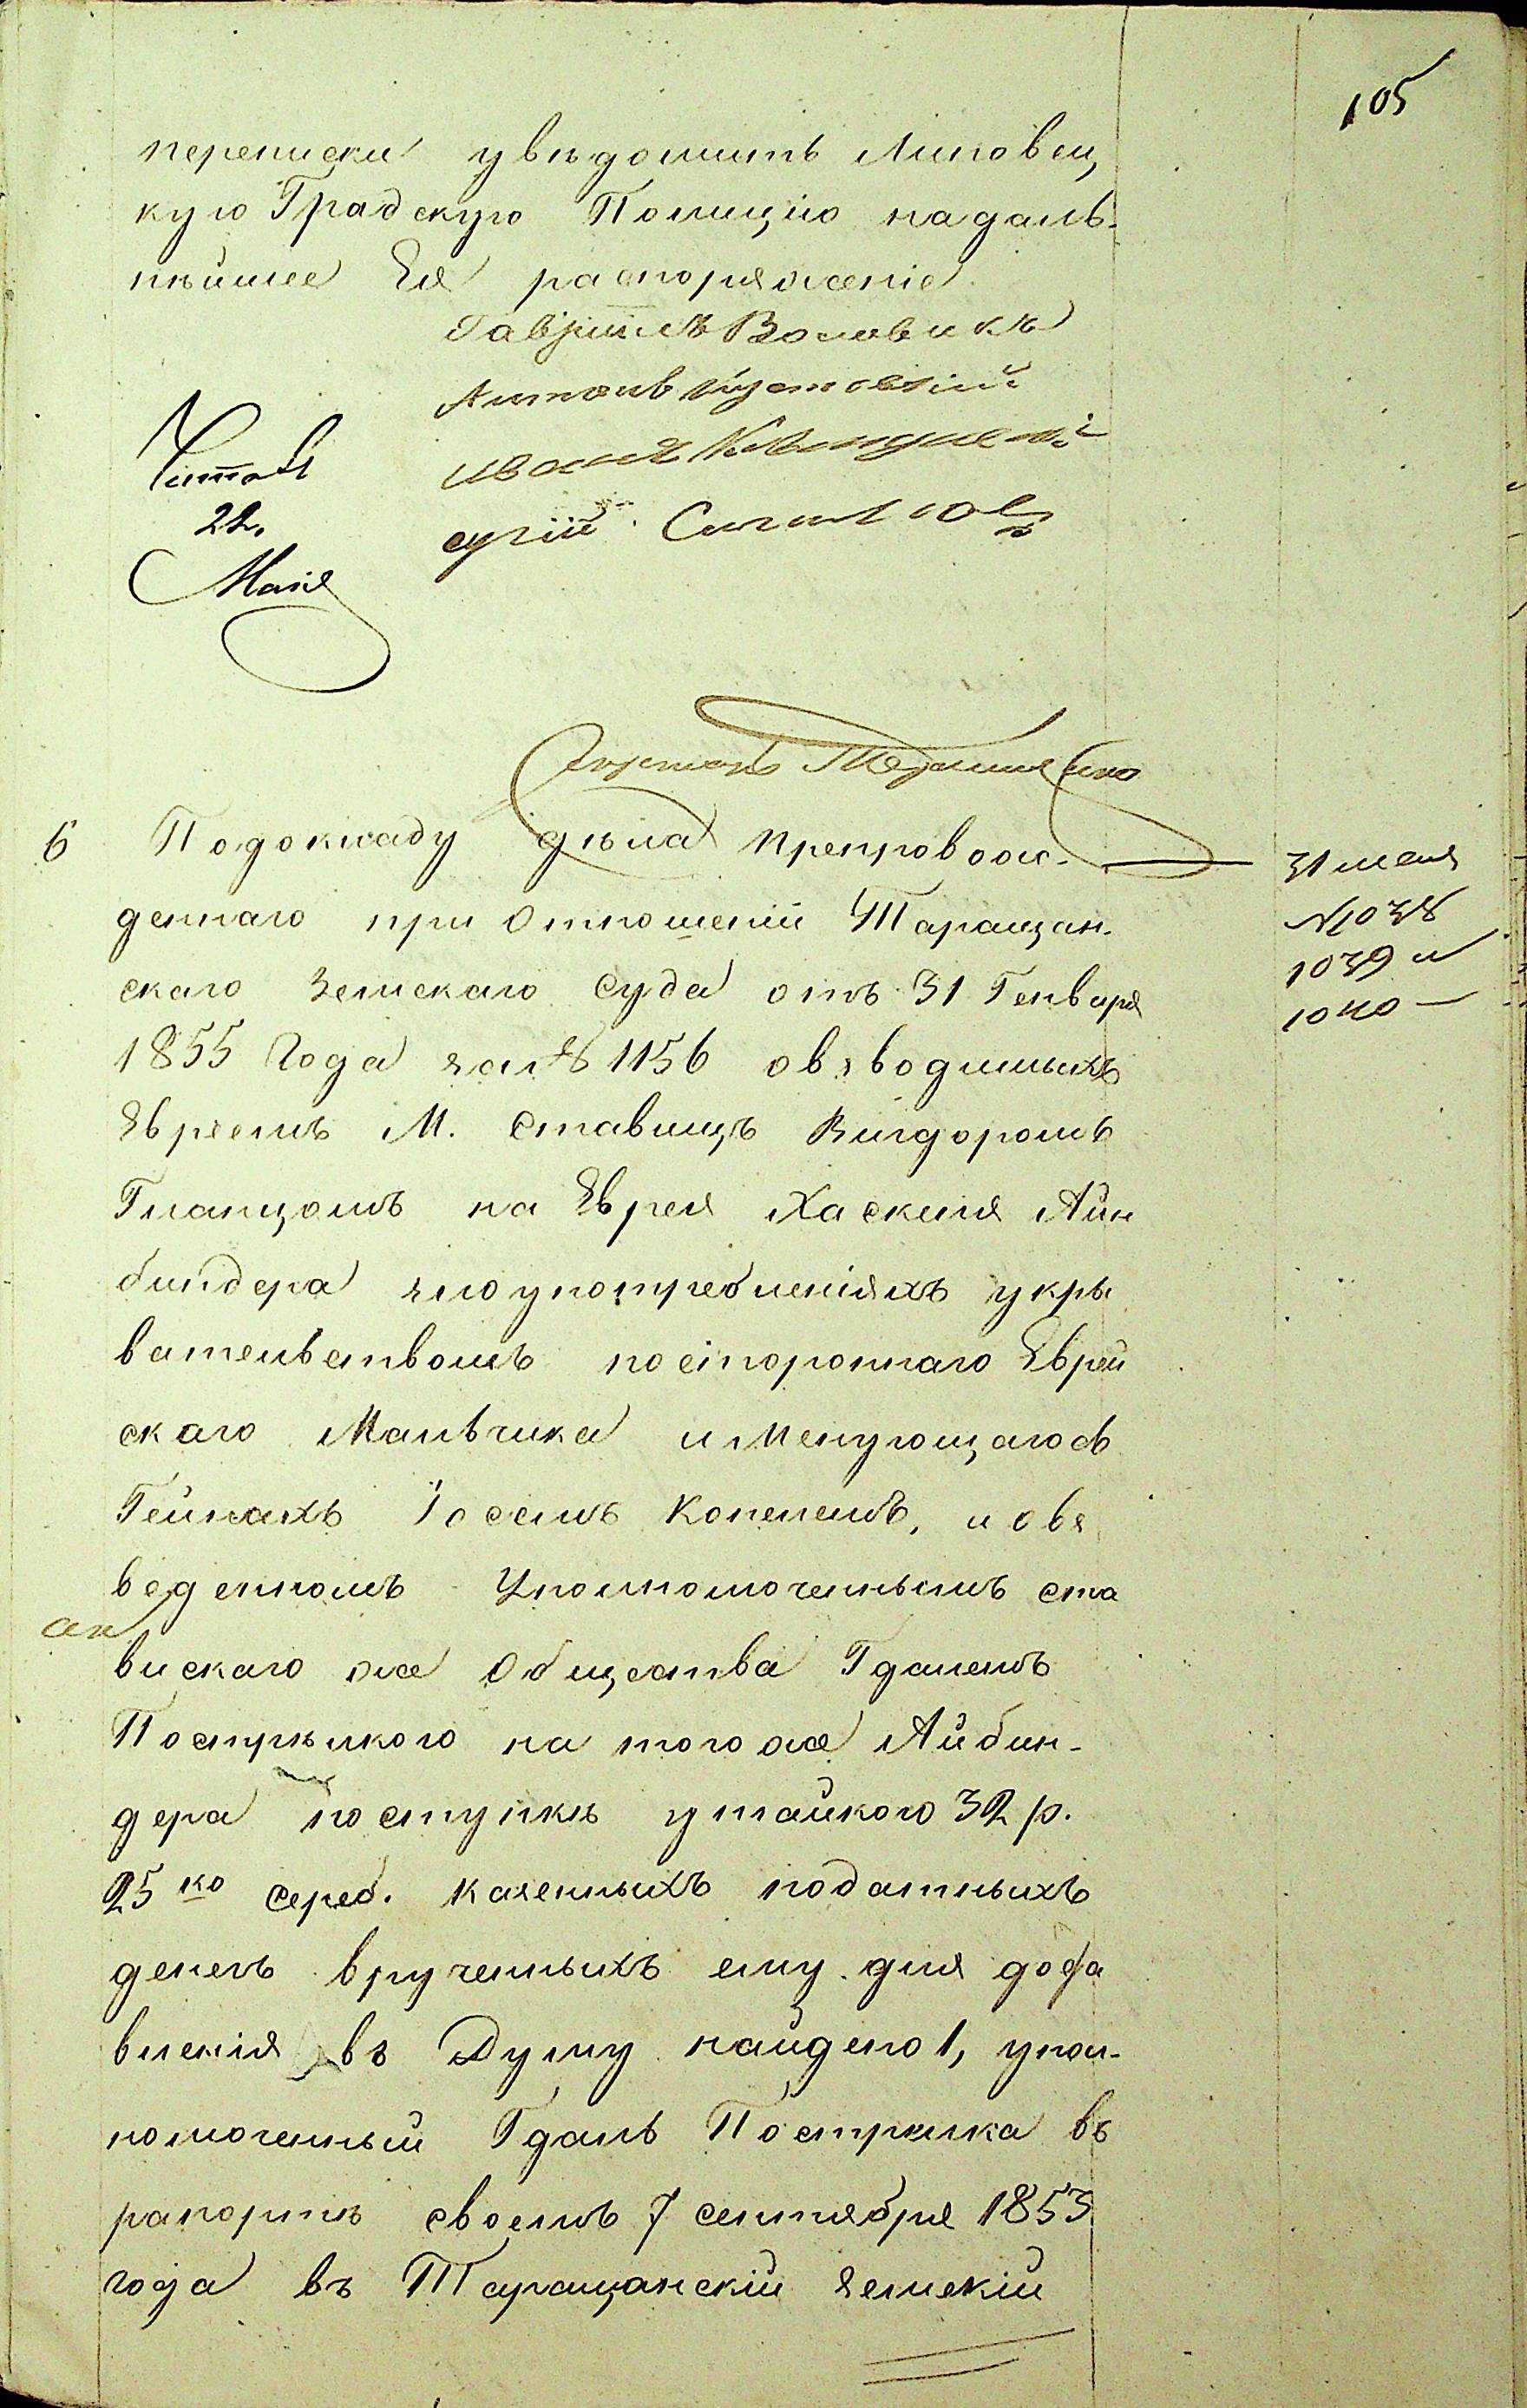 105
переписки увѣдомить Липовец
кую Градскую Полицію на даль-
нѣйшее Ея распоряженіе
Гавріилъ Воловикъ
Антонъ
Читалъ
22.
Мая
6 По докладу дѣла препровож-
деннаго при Отношеніи Таращан-
скаго Земскаго Суда отъ 31 Генваря
1855 Года за № 1156 обзводимыхъ
Евреемъ М. Ставищъ Вигдоромъ
Гланцомъ на Еврея Хаскеля Айн
биндера злоупотребленіяхъ укры
вательствомъ постороннаго Еврей
скаго Мальчика именующагось
Гейнахъ Іосемъ Копелемъ, и обз
веденномъ Уполномоченнымъ ста
вискаго же Общества Гдалемъ
Пострѣлкого на того же Айбин-
дера поступкѣ утайкого 32 р.
25 ко сереб. казенныхъ податныхъ
денегъ врученныхъ ему для доста
вленія въ Думу найдено 1, упол-
номоченный Гдаль Пострелка въ
рапортѣ своемъ 7 сентября 1853
года въ Таращанскій земскій
31 мая
№ 1038
1039 и
1040 —